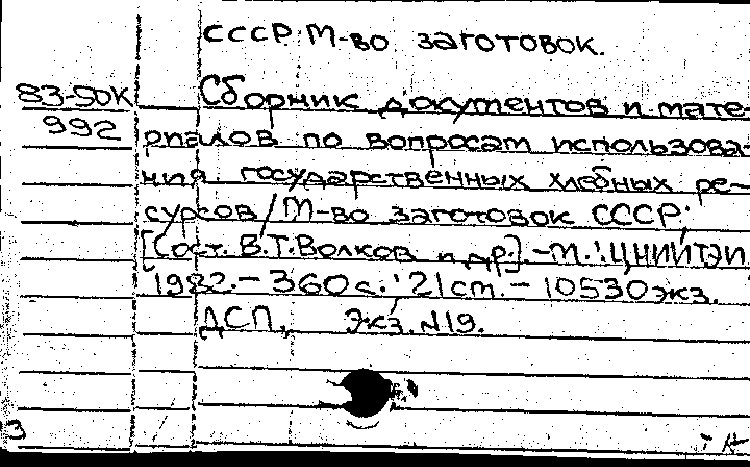 СССР. М-во заготовок.
83-50к
992
Сборник документов и мате-
риалов по вопросам использова-
ния государственных хлебных ре-
сурсов / М-во заготовок СССР;
[Сост. В.Т.Волков и др.]. - М. : ЦНИИТЭИ,
1982. - 360 с. ; 21 см. - 10530 экз.
ДСП, Экз. N 19.
3